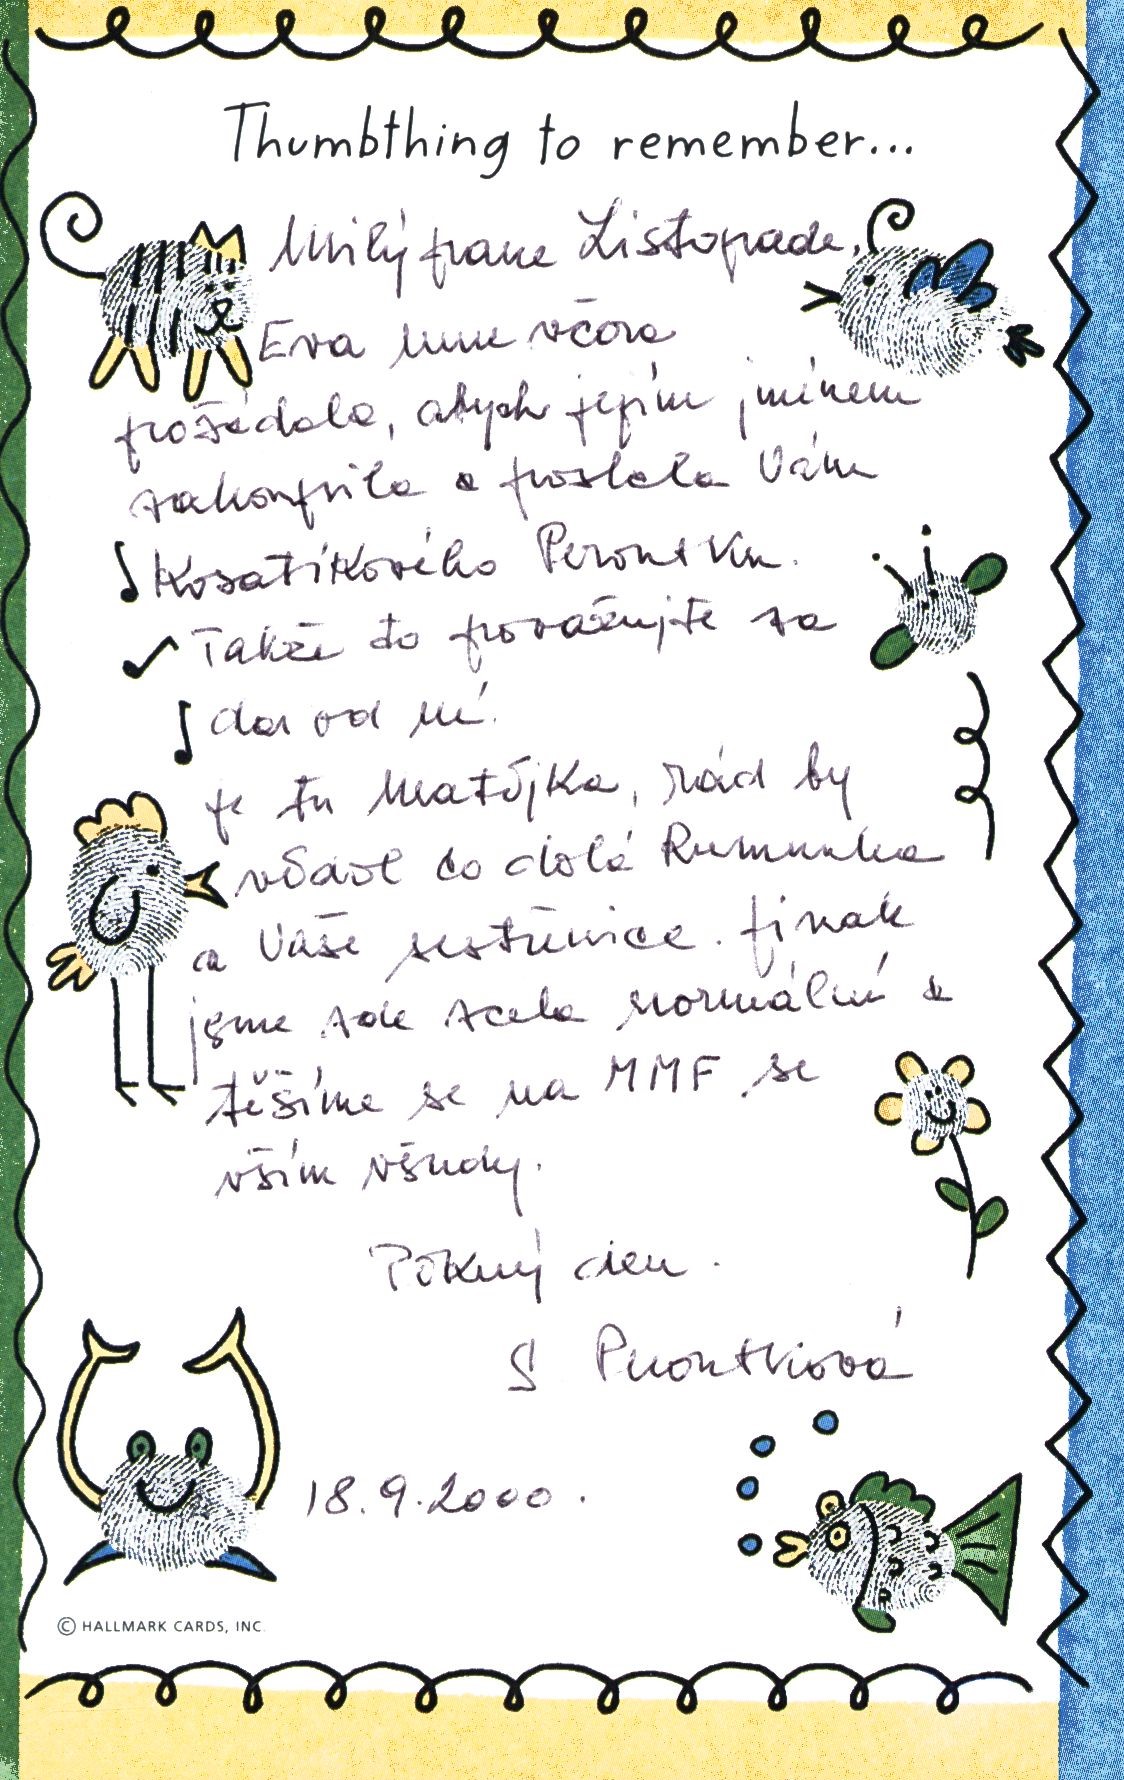 Thumbthing to remember...
Milý pane Listopade,
Eva mne včera
požádala, abych jejím jménem
zakoupila a poslala Vám
Kosatíkového
Takže to považujte za
dar od ní.
je tu Matějka, rád by
věděl co dělá Rumunka
a Vaše sestřenice. Jinak
jsme zde zcela normální a
těšíme se na MMF se
vším všudy.
Pěkný den.
S
18.9.2000.
© HALLMARK CARDS, INC.